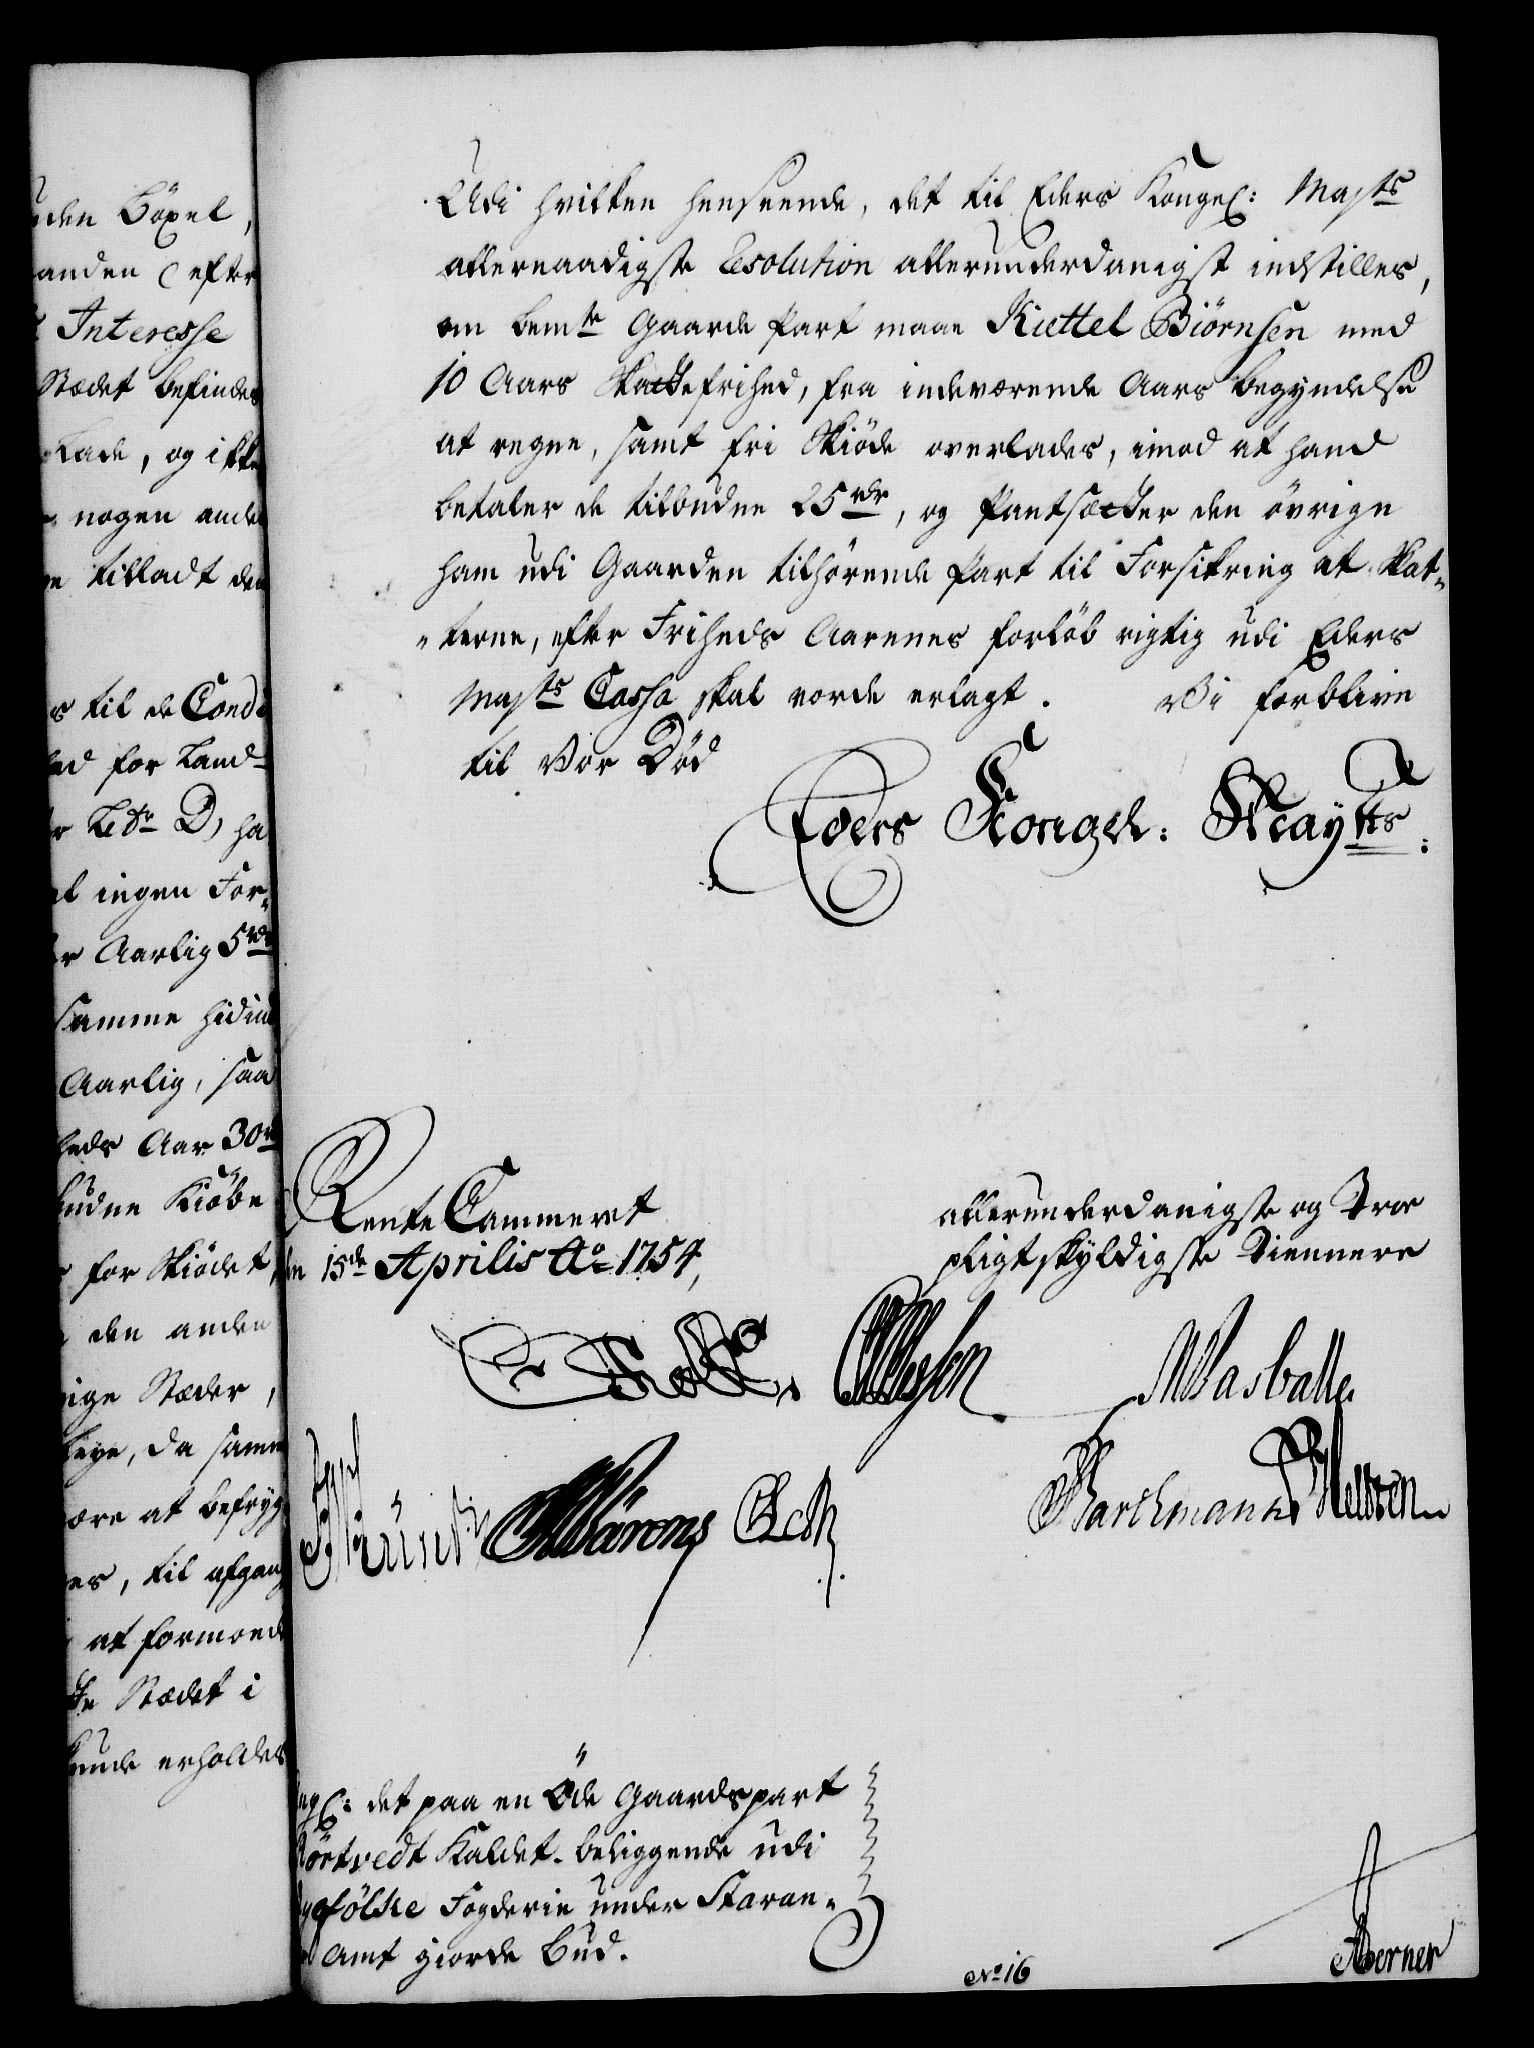 uden Böxel,
anden efter
Interesse
Stædet befindes
Lade, og ikke
nogen anden
tilladt den
til de Cond
for Land-
Litr D, ha
ingen For-
Aarlig 5 rdr
samme hidind
Aarlig, saa
heds Aar 30 rd
budne Kiöbe
for Skiödet,
den anden
Stæder,
da samme
være at befryg
til afgang
at formoede
Stædet i
kunde erholdes
Udi hvilken henseende, det til Eders Kongel: Majts
allernaadigste Resolution allerunderdanigst indstilles,
om bemte Gaarde Part maae Kiettel Biörnsen med
10 Aars Skattefrihed, fra indeværende Aars begyndelse
at regne, samt fri Skiöde overlades, imod at hand
betaler de tilbudne 25 rdr, og Pantsætter den övrige
ham udi Gaarden tilhörende Part til Forsikring at Skat-
-terne, efter Friheds Aarenes forlöb rigtig udi Eders
Majts Cassa skal vorde erlagt. Vi forblive
til Vor Död
Eders Kongel: Mayts
Rente Cammeret
den 15de Aprilis Ao 1754,
allerunderdanigste og Troe
pligtskyldigste Tiennere
Holst.
Wasballe
Barchmann
Öde Gaardspart
det paa en
Rörtvedt Kaldet. beliggende udi
Fogderie under Stavan-
Amt giorde bud.
No 16
Berner